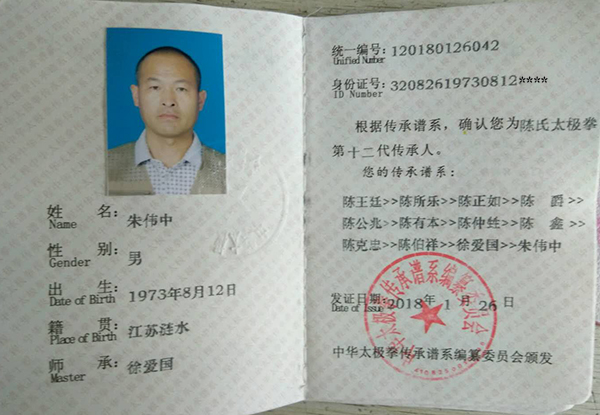 姓 名：朱伟中
Name
性 别：男
Gender
出 生：1973年8月12日
Date of Birth
籍 贯：江苏涟水
Place of Birth
师 承：徐爱国
Master
统一编号：120180126042
Unified Number
身份证号：32082619730812****
ID Number
根据传承谱系，确认您为陈氏太极拳
第十二代传承人。
您的传承谱系：
陈王廷>>陈所乐>>陈正如>>陈 爵>>
陈公兆>>陈有本>>陈仲甡>>陈 鑫>>
陈克忠>>陈伯祥>>徐爱国>>朱伟中
发证日期：2018年 1 月 26 日
Date of Issue
中华太极拳传承谱系编纂委员会
中华太极拳传承谱系编纂委员会颁发